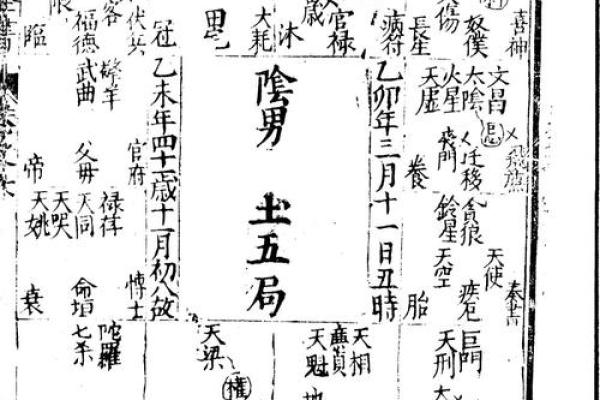 喜神
奴僕
傷
長星
病符
官禄
歲
沐
大耗
冠
伏兵
客
福德
臨
文昌
太陰
火星
天虛
忌
飛廉
遷移
喪門
養
乙卯年三月十一日丑時
陰男
土五局
乙未年四十一歲十一月初八故
擎羊
武曲
官府
父母
帝
貪狼
鈴星
天使
天空
奏書
疾厄
胎
天同
天哭
天姚
博士
衰
巨門
天刑
天相
廉貞
天魁
天梁
權
陀羅
七杀